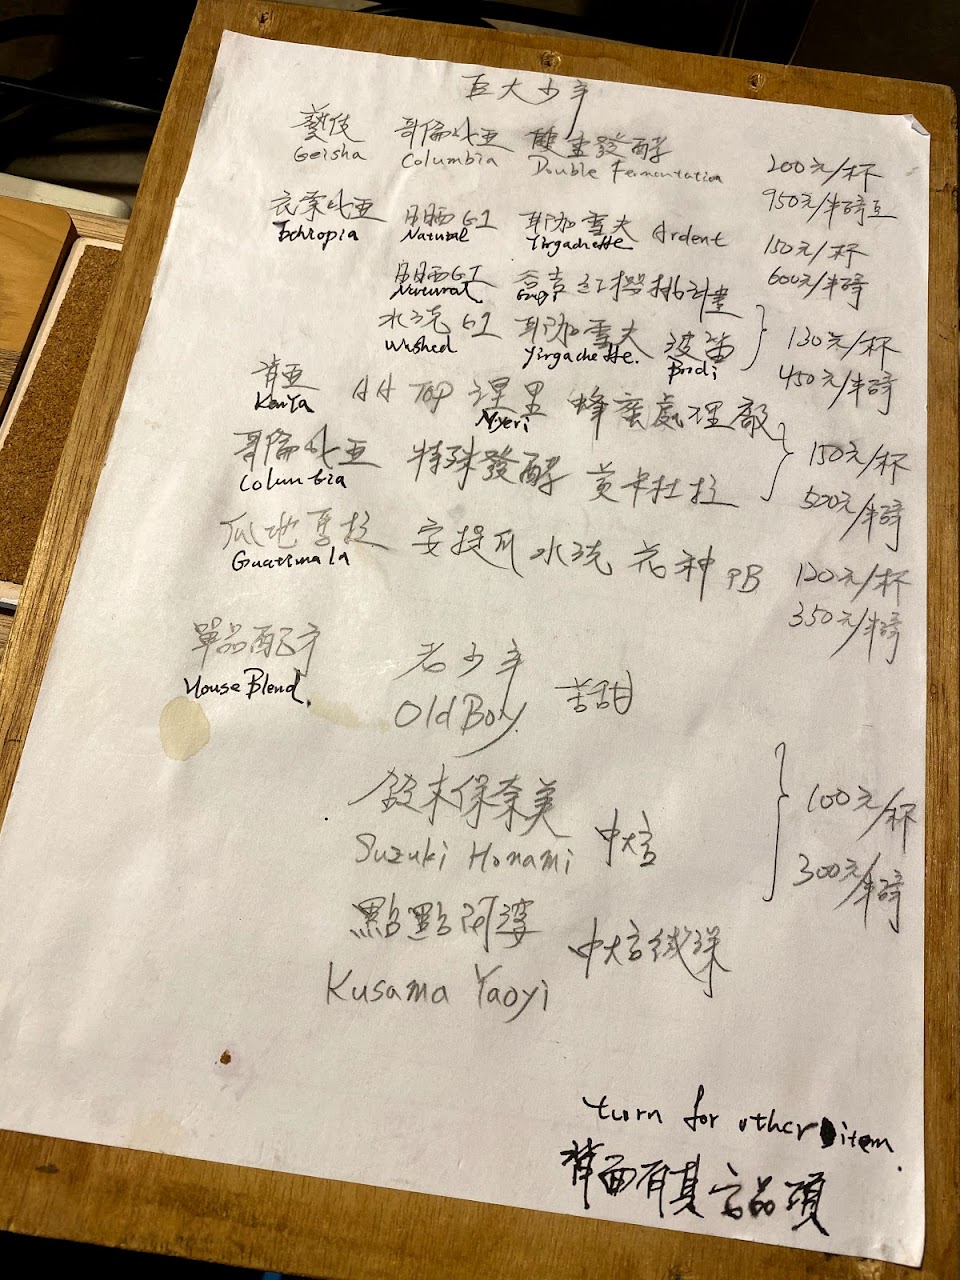 巨大少年
藝伎 哥倫比亞 雙重發酵 200元/杯
Geisha Columbia Double Fermentation 950元/半磅豆
衣索比亞 日晒G1 耶加雪夫 Ardent 150元/杯
Ethiopia Natural Yirgacheffe 600元/半磅
日晒G1 谷吉 紅櫻桃計畫
Natural Guji
水洗G1 耶加雪夫 波笛 130元/杯
Washed Yirgacheffe. Bodi 450元/半磅
肯亞 AA TOP 涅里 蜂蜜處理廠
KenYa Nyeri
哥倫比亞 特殊發酵 莫卡杜拉 150元/杯
Columbia 500元/半磅
瓜地馬拉 安提瓜 水洗 花神 PB 120元/杯
Guatimala 350元/半磅
單品配方 老少年 苦甜
House Blend. Old Boy
鈴木保奈美 中性 100元/杯
Suzuki Honami 300元/半磅
點點阿婆
Kusama Yaoyi
turn for other item.
背面有其它品項